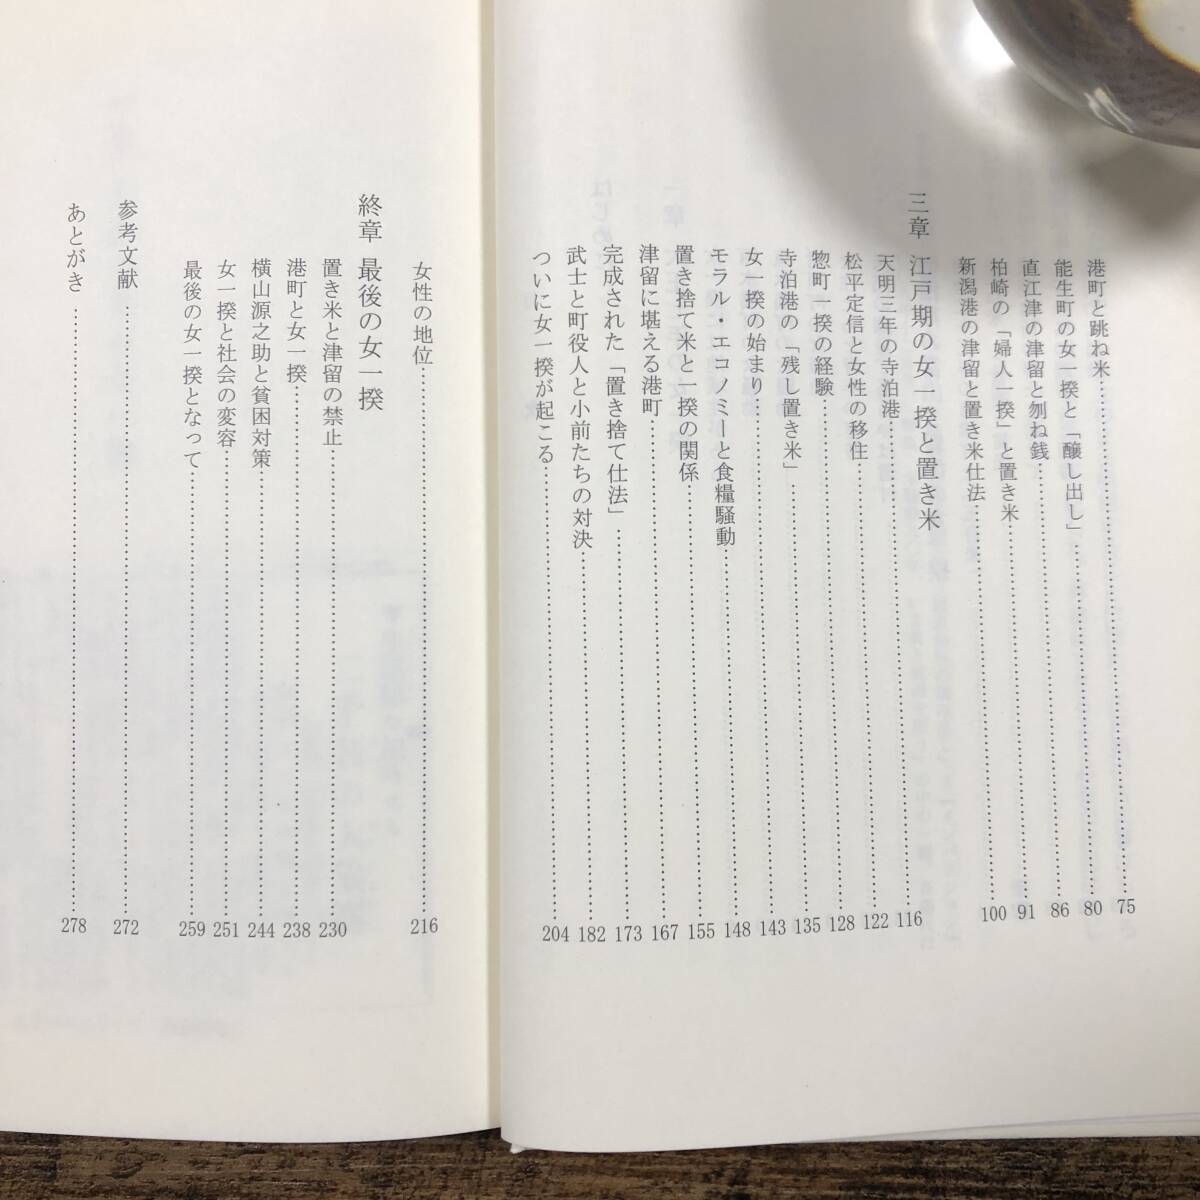 港町と跳ね米……75
能生町の女一揆と「醸し出し」……80
直江津の津留と刎ね銭……86
柏崎の「婦人一揆」と置き米……91
新潟港の津留と置き米仕法……100
三章 江戸期の女一揆と置き米
天明三年の寺泊港……116
松平定信と女性の移住……122
惣町一揆の経験……128
寺泊港の「残し置き米」……135
女一揆の始まり……143
モラル・エコノミーと食糧騒動……148
置き捨て米と一揆の関係……155
津留に堪える港町……167
完成された「置き捨て仕法」……173
武士と町役人と小前たちの対決……182
ついに女一揆が起こる……204
女性の地位……216
終章 最後の女一揆
置き米と津留の禁止……230
港町と女一揆……238
横山源之助と貧困対策……244
女一揆と社会の変容……251
最後の女一揆となって……259
参考文献……272
あとがき……278